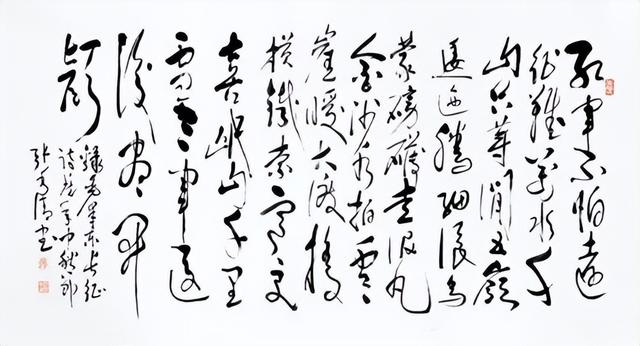 红军不怕远
征难万水千
山只等闲五岭
逶迤腾细浪乌
蒙磅礴走泥丸
金沙水拍云
崖暖大渡桥
横铁索寒更
喜岷山千里
雪三军过
后尽开
颜
录毛泽东长征
诗 年中秋节
张 清书